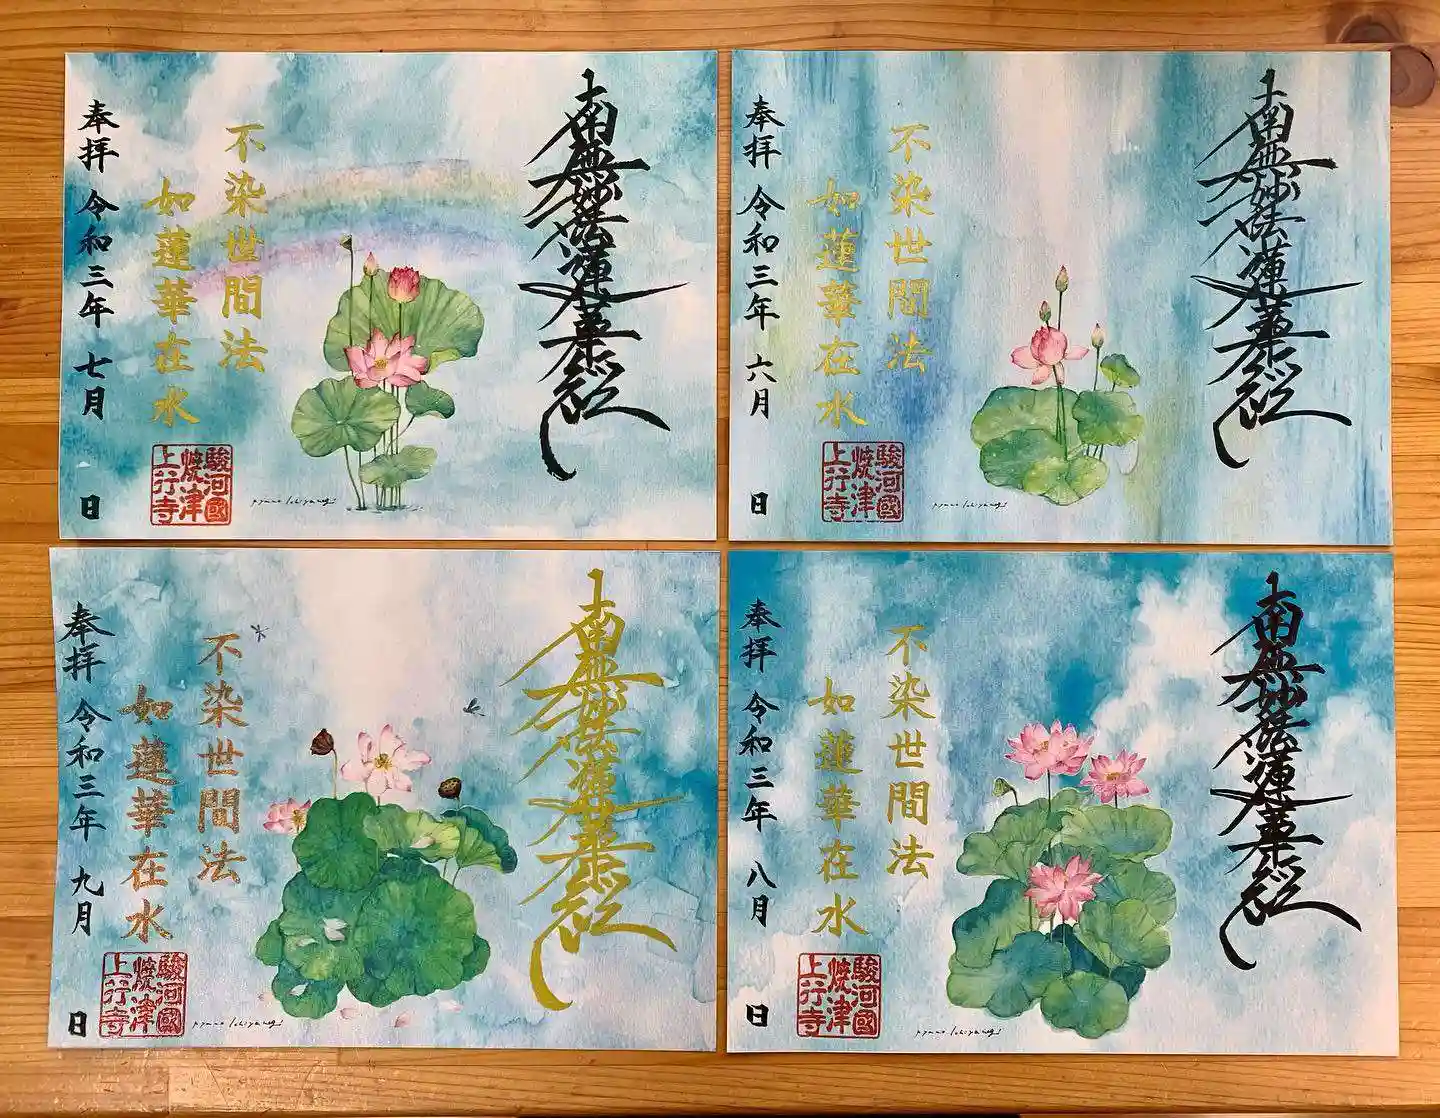 南無妙法蓮華経
不染世間法
如蓮華在水
奉拝 令和三年 七月 日
駿河國
焼津
上行寺
南無妙法蓮華経
不染世間法
如蓮華在水
奉拝 令和三年 六月 日
駿河國
焼津
上行寺
南無妙法蓮華経
不染世間法
如蓮華在水
奉拝 令和三年 九月 日
駿河國
焼津
上行寺
南無妙法蓮華経
不染世間法
如蓮華在水
奉拝 令和三年 八月 日
駿河國
焼津
上行寺